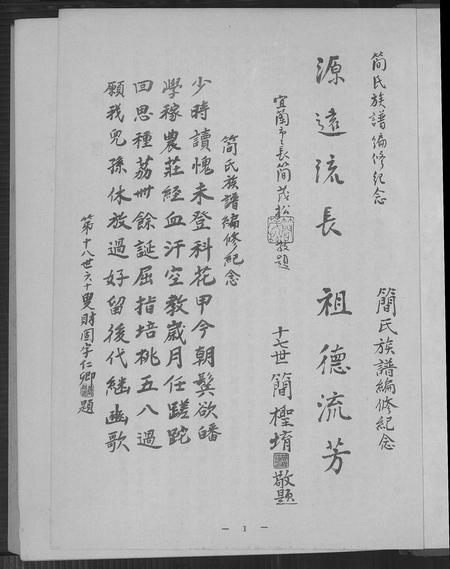 簡氏族譜編修紀念
源遠流長
宜蘭市長簡茂松敬題
簡氏族譜編修紀念
祖德流芳
十七世簡樫堉敬題
簡氏族譜編修紀念
少時讀愧未登科花甲今朝鬓欲皤
學稼農莊經血汗空教歲月任蹉跎
回思種荔卅餘誕屈指培桃五八過
願我兒孫休放過好留後代繼幽歌
第十八世六十叟財固字仁卿題
- 1 -